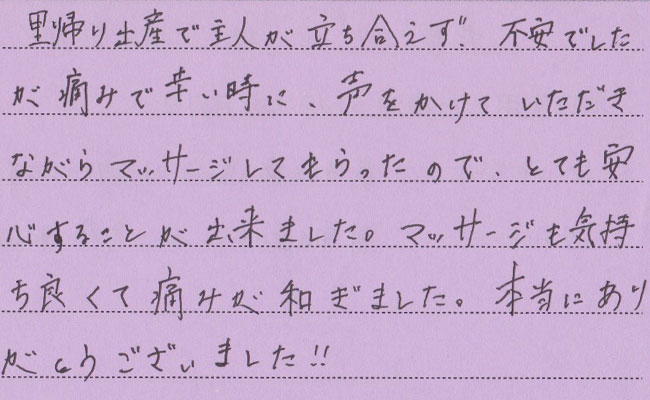 里帰り出産で主人が立ち会えず、不安でした
が痛みで辛い時に、声をかけていただき
ながらマッサージしてもらったので、とても安
心することが出来ました。マッサージも気持
ち良くて痛みが和ぎました。本当にあり
がとうございました!!